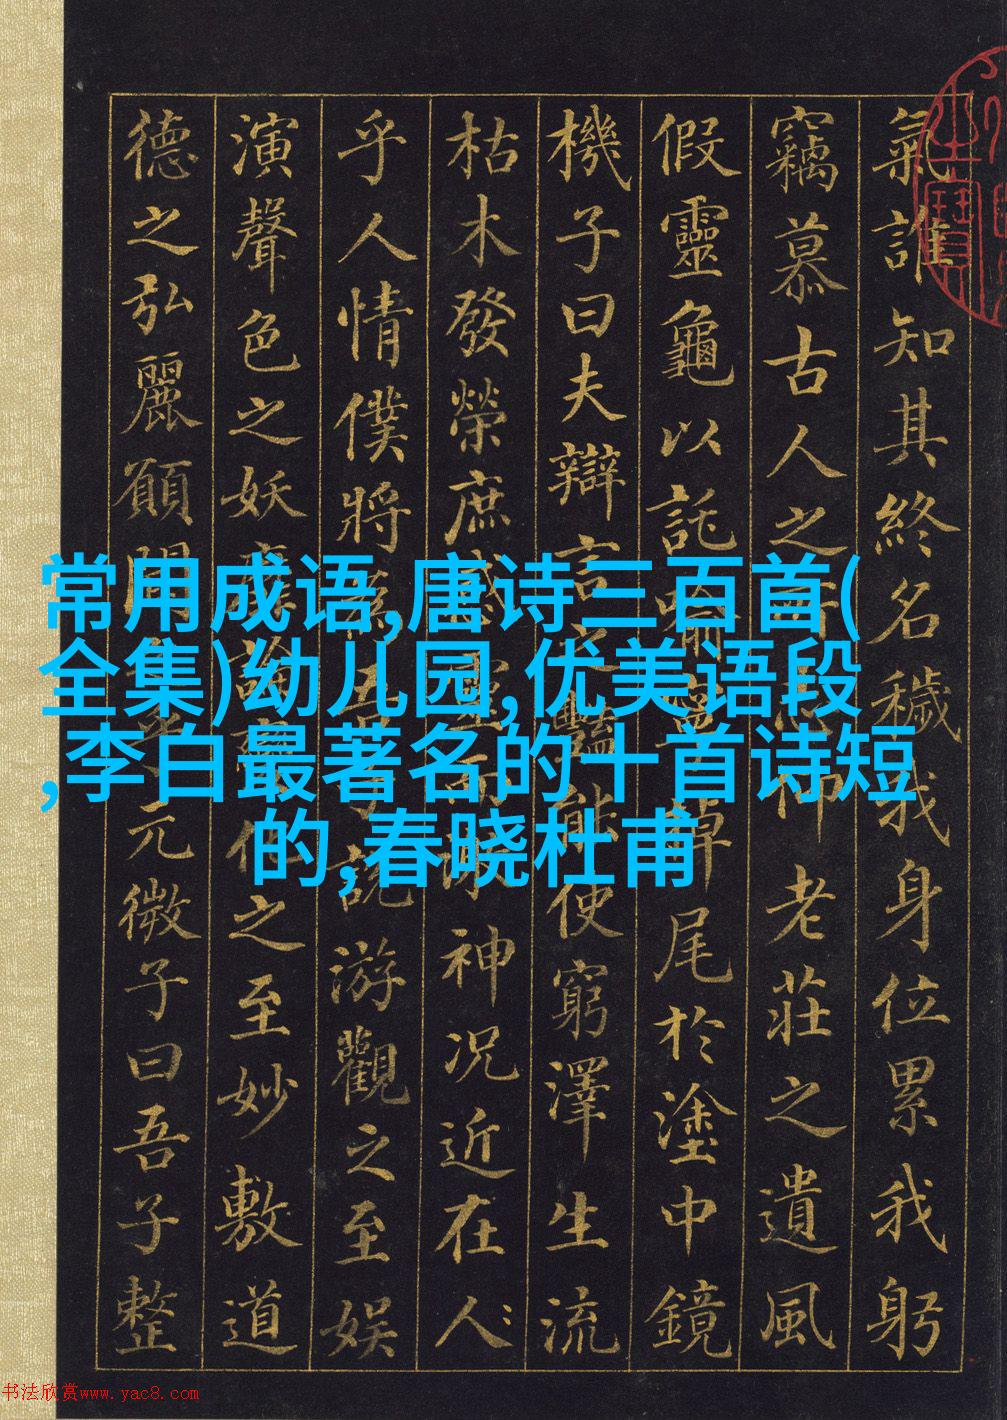 氣誰知其終名穢我身位累我躬
竊慕古人之所仰老莊之遺風
假靈龜以託喻掉尾於塗中鏡
機子曰夫辯言之豔能使窮澤生流
枯木發榮庶感靈而神況近在人
乎人情僕將為吾子說游觀之至娛
演聲色之妖靡論變化之至妙敷道
德之弘麗願聞元微子曰吾子整
常用成语,唐诗三百首(
全集)幼儿园,优美语段
,李白最著名的十首诗短
的,春晓杜甫
书法欣赏www.yac8.com